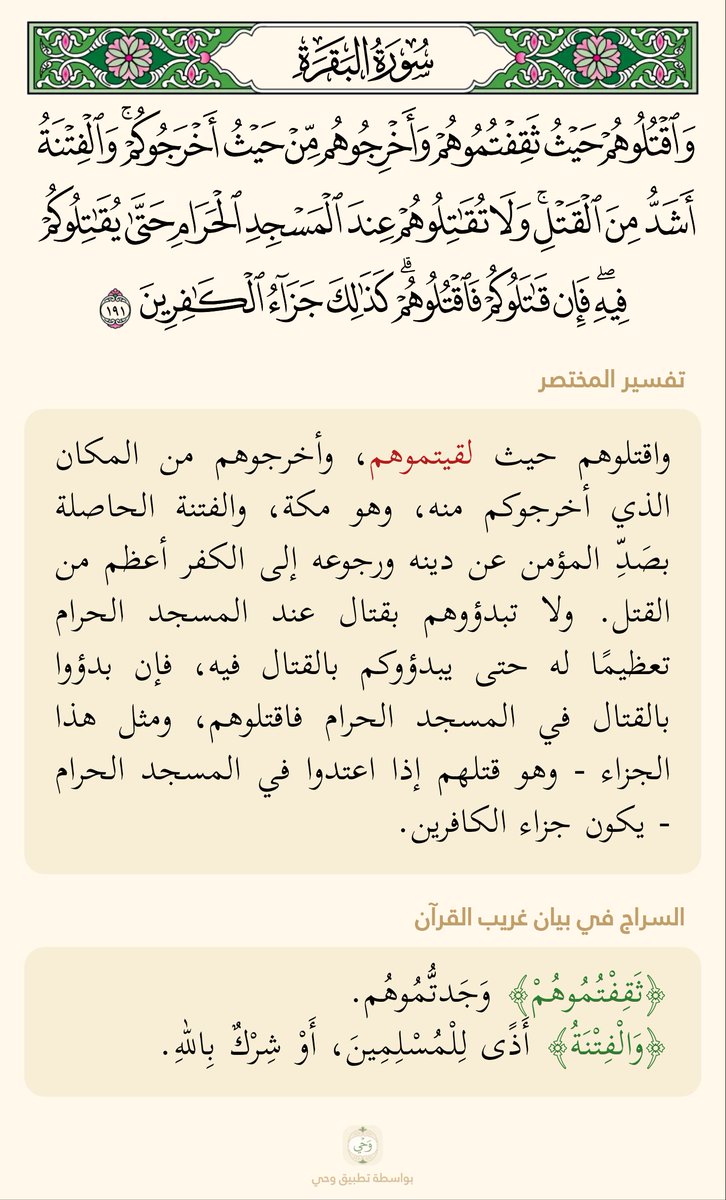 سُورَةُ البَقَرَةِ
وَٱقۡتُلُوهُمۡ حَيۡثُ ثَقِفۡتُمُوهُمۡ وَأَخۡرِجُوهُم مِّنۡ حَيۡثُ أَخۡرَجُوكُمۡۚ وَٱلۡفِتۡنَةُ
أَشَدُّ مِنَ ٱلۡقَتۡلِۚ وَلَا تُقَٰتِلُوهُمۡ عِندَ ٱلۡمَسۡجِدِ ٱلۡحَرَامِ حَتَّىٰ يُقَٰتِلُوكُمۡ
فِيهِۖ فَإِن قَٰتَلُوكُمۡ فَٱقۡتُلُوهُمۡۗ كَذَٰلِكَ جَزَآءُ ٱلۡكَٰفِرِينَ ١٩١
تفسير المختصر
واقتلوهم حيث لقيتموهم، وأخرجوهم من المكان
الذي أخرجوكم منه، وهو مكة، والفتنة الحاصلة
بصَدِّ المؤمن عن دينه ورجوعه إلى الكفر أعظم من
القتل. ولا تبدؤوهم بقتال عند المسجد الحرام
تعظيمًا له حتى يبدؤوكم بالقتال فيه، فإن بدؤوا
بالقتال في المسجد الحرام فاقتلوهم، ومثل هذا
الجزاء - وهو قتلهم إذا اعتدوا في المسجد الحرام
- يكون جزاء الكافرين.
السراج في بيان غريب القرآن
﴿ثَقِفْتُمُوهُمْ﴾ وَجَدتُّمُوهُم.
﴿وَالْفِتْنَةُ﴾ أَذًى لِلْمُسْلِمِينَ، أَوْ شِرْكٌ بِاللهِ.
وَحْي
بواسطة تطبيق وحي